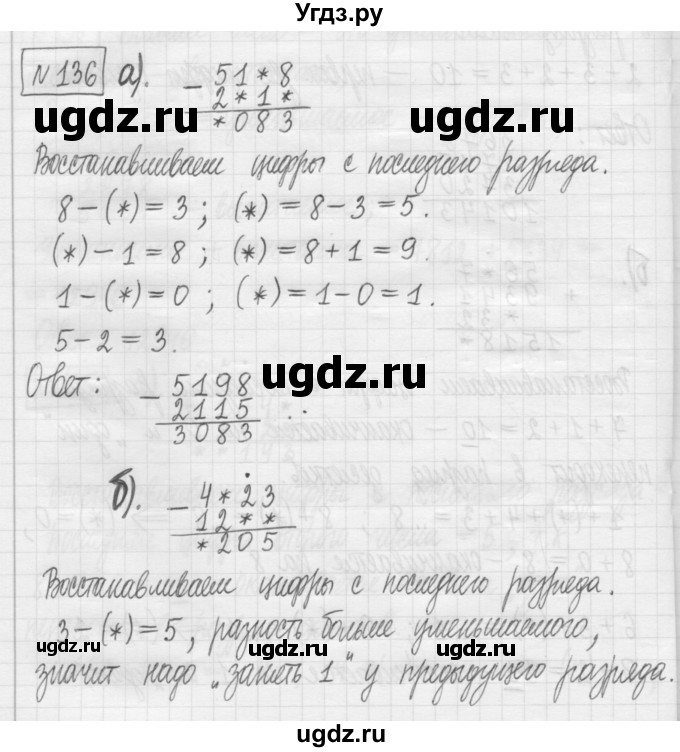 Угдз.ру
№136 а).
− 51*8
2*1*
*083
Восстанавливаем цифры с последнего разряда.
8−(*)=3 ; (*)=8−3=5.
(*)−1=8 ; (*)=8+1=9.
1−(*)=0 ; (*)=1−0=1.
5−2=3.
Ответ: − 5198
2115
3083
б). − 4*23
12**
*205
Восстанавливаем цифры с последнего разряда.
3−(*)=5, разность больше уменьшаемого,
значит надо „занять 1" у предыдущего разряда.
ugdz.ru ugdz.ru
ugdz.ru ugdz.ru
ugdz.ru
ugdz.ru ugdz.ru
ugdz.ru ugdz.ru ugdz.ru
ugdz.ru